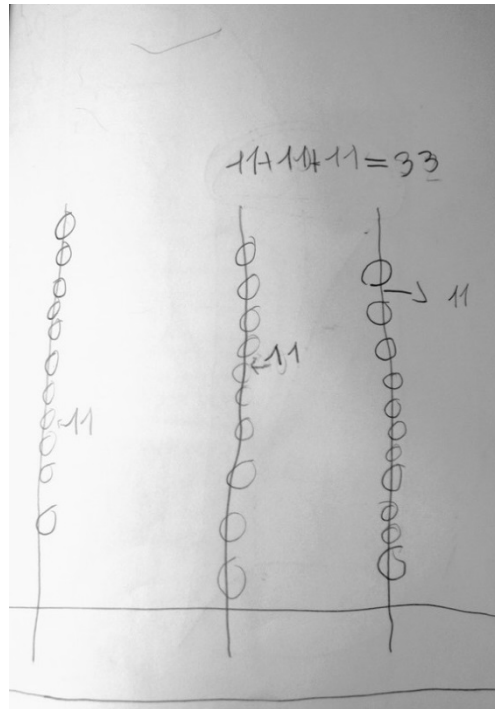 11+11+11=33
11
11
11